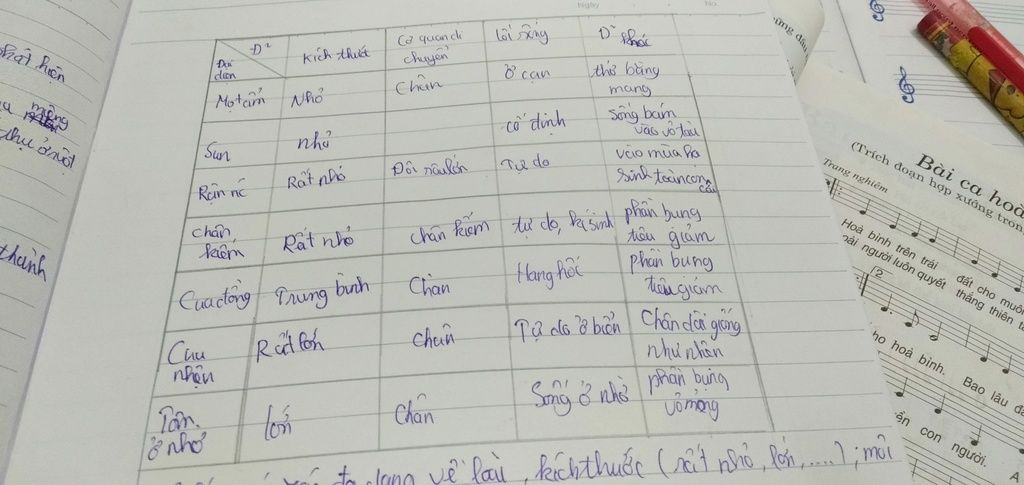 Ngày No.
Đ² Đại diện
Kích thước
Cơ quan di chuyển
Lối sống
Đ² khác
Mọt ẩm
Nhỏ
Chân
Ở cạn
thở bằng mang
Sun
nhỏ
cố định
Sống bám vào vỏ tàu
Rận nc
Rất nhỏ
Đôi râu lớn
Tự do
vào mùa hạ sinh toàn con cái
chân kiếm
Rất nhỏ
chân kiếm
tự do, kí sinh
phần bụng tiêu giảm
Cua đồng
Trung bình
Chân
Hang hốc
phần bụng tiêu giảm
Cua nhện
Rất lớn
chân
Tự do ở biển
Chân dài giống như nhện
Tôm ở nhờ
lớn
Chân
Sống ở nhờ
phần bụng vỏ mỏng
đa dạng về loài, kích thước (rất nhỏ, lớn, ....); môi
phát hiện
thành
Bài ca hoà
(Trích đoạn hợp xướng tron
Trang nghiêm
Hoà bình trên trái đất cho muôn
oài người luôn quyết thắng thiên t
ho hoà bình. Bao lâu đã
con người. A